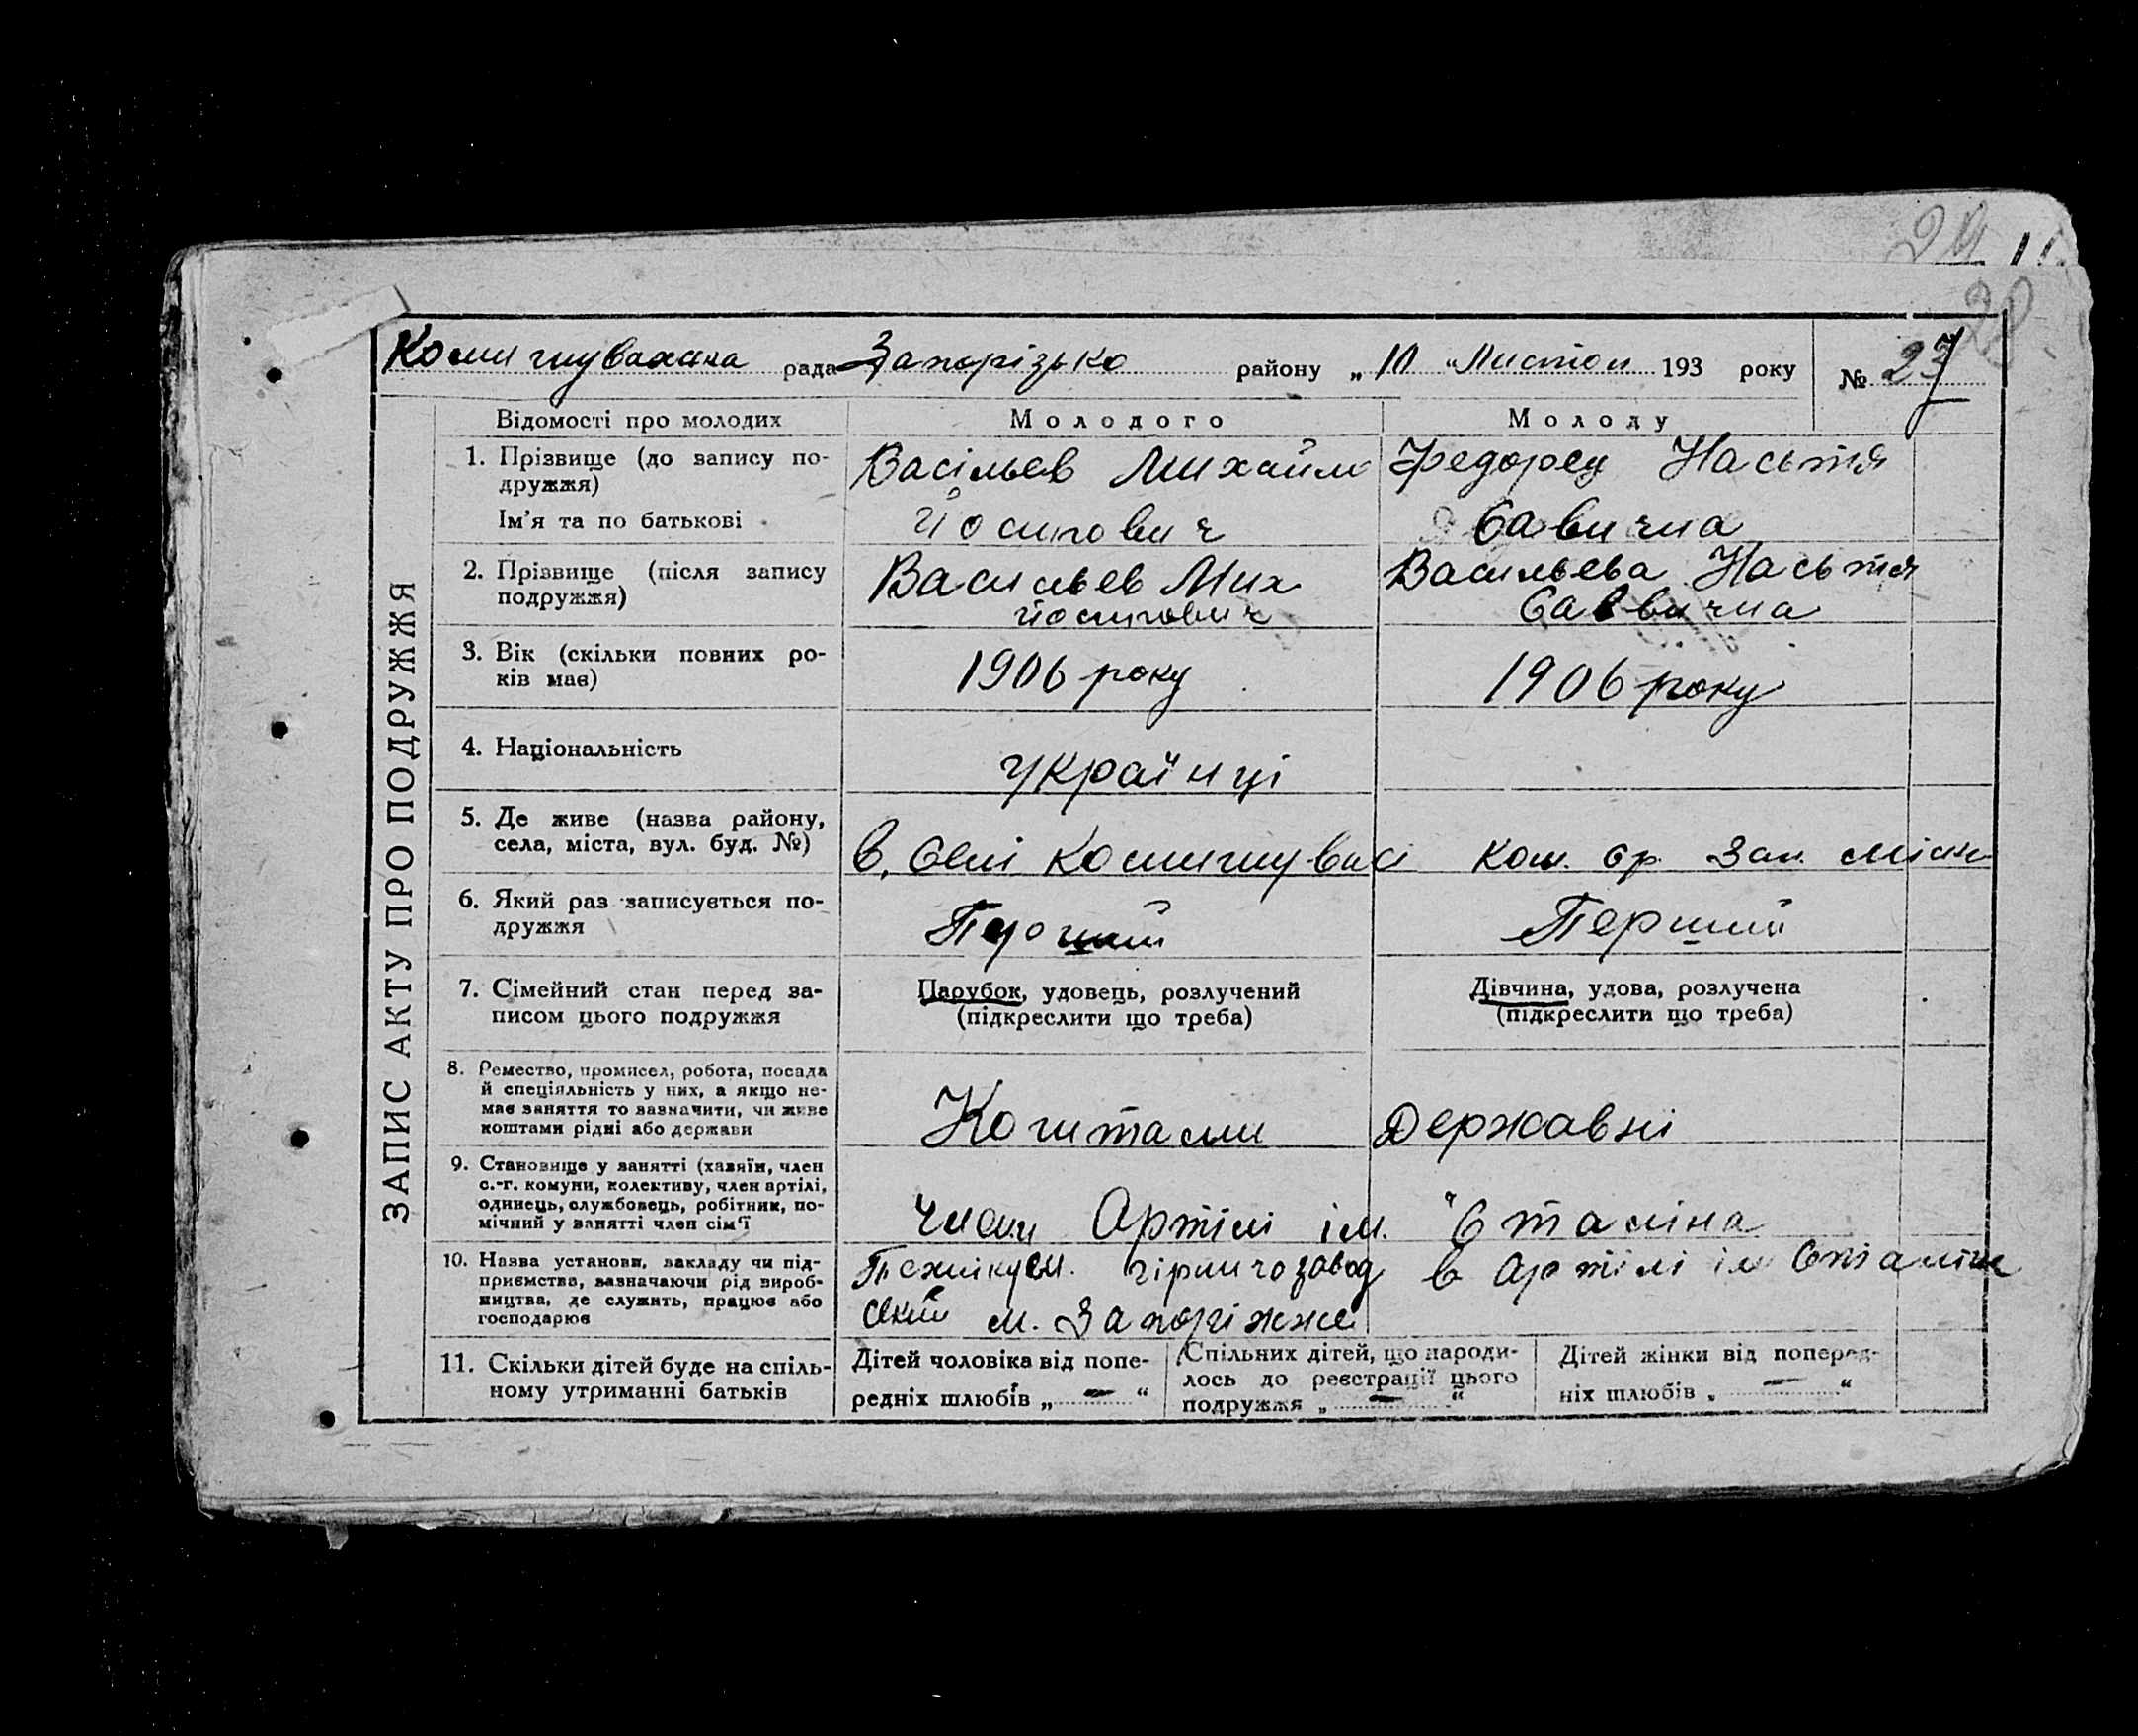 Комишуваська рада Запорізько району „ 10 " Листоп 193 року № 27
ЗАПИС АКТУ ПРО ПОДРУЖЖЯ
Відомості про молодих Молодого Молоду
1. Прізвище (до запису по- Васільев Михайло Федорец Настя
дружжя)
Ім'я та по батькові Йосипович Савична
2. Прізвище (після запису Васильев Мих Васильева Настя
подружжя) Йосипович Саввична
3. Вік (скільки повних ро- 1906 року 1906 року
ків має)
4. Національність Українці
5. Де живе (назва району,
села, міста, вул. буд. №) в. Селі Комишувасі Ком. ср. Зап. міськ
6. Який раз записується по- Перший Перший
дружжя
7. Сімейний стан перед за- Парубок, удовець, розлучений Дівчина, удова, розлучена
писом цього подружжя (підкреслити що треба) (підкреслити що треба)
8. Ремество, промисел, робота, посада
й спеціяльність у них, а якщо не-
має заняття то зазначити, чи живе Коштами Державні
коштами рідні або держави
9. Становище у занятті (хазяїн, член
с.-г. комуни, колективу, член артілі,
одинець, службовець, робітник, по- Член Артілі ім. Сталіна
мічний у занятті член сім'ї
10. Назва установи, закладу чи під- Технікум. гірничозавод в Артілі ім Сталіна
приємства, зазначаючи рід вироб-
ництва, де служить, працює або ський м. Запоріжже
господарює
11. Скільки дітей буде на спіль- Дітей чоловіка від попе- Спільних дітей, що народи- Дітей жінки від поперед-
ному утриманні батьків редніх шлюбів „ — " лось до реєстрації цього ніх шлюбів „ — "
подружжя „ — "